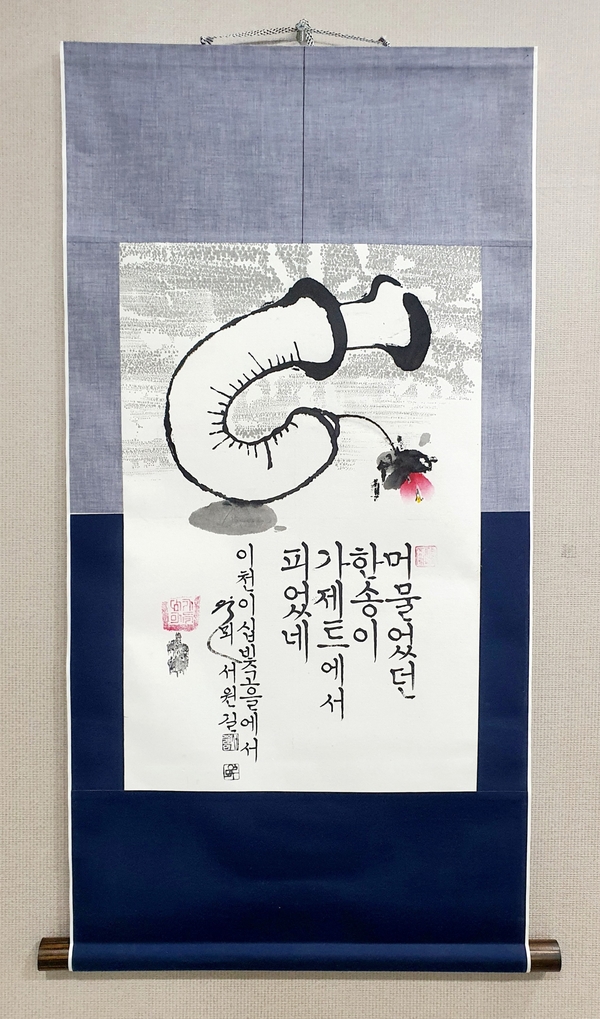 머물었던
한송이
가제드에서
피었네
이천이십빛고을에서
서원길